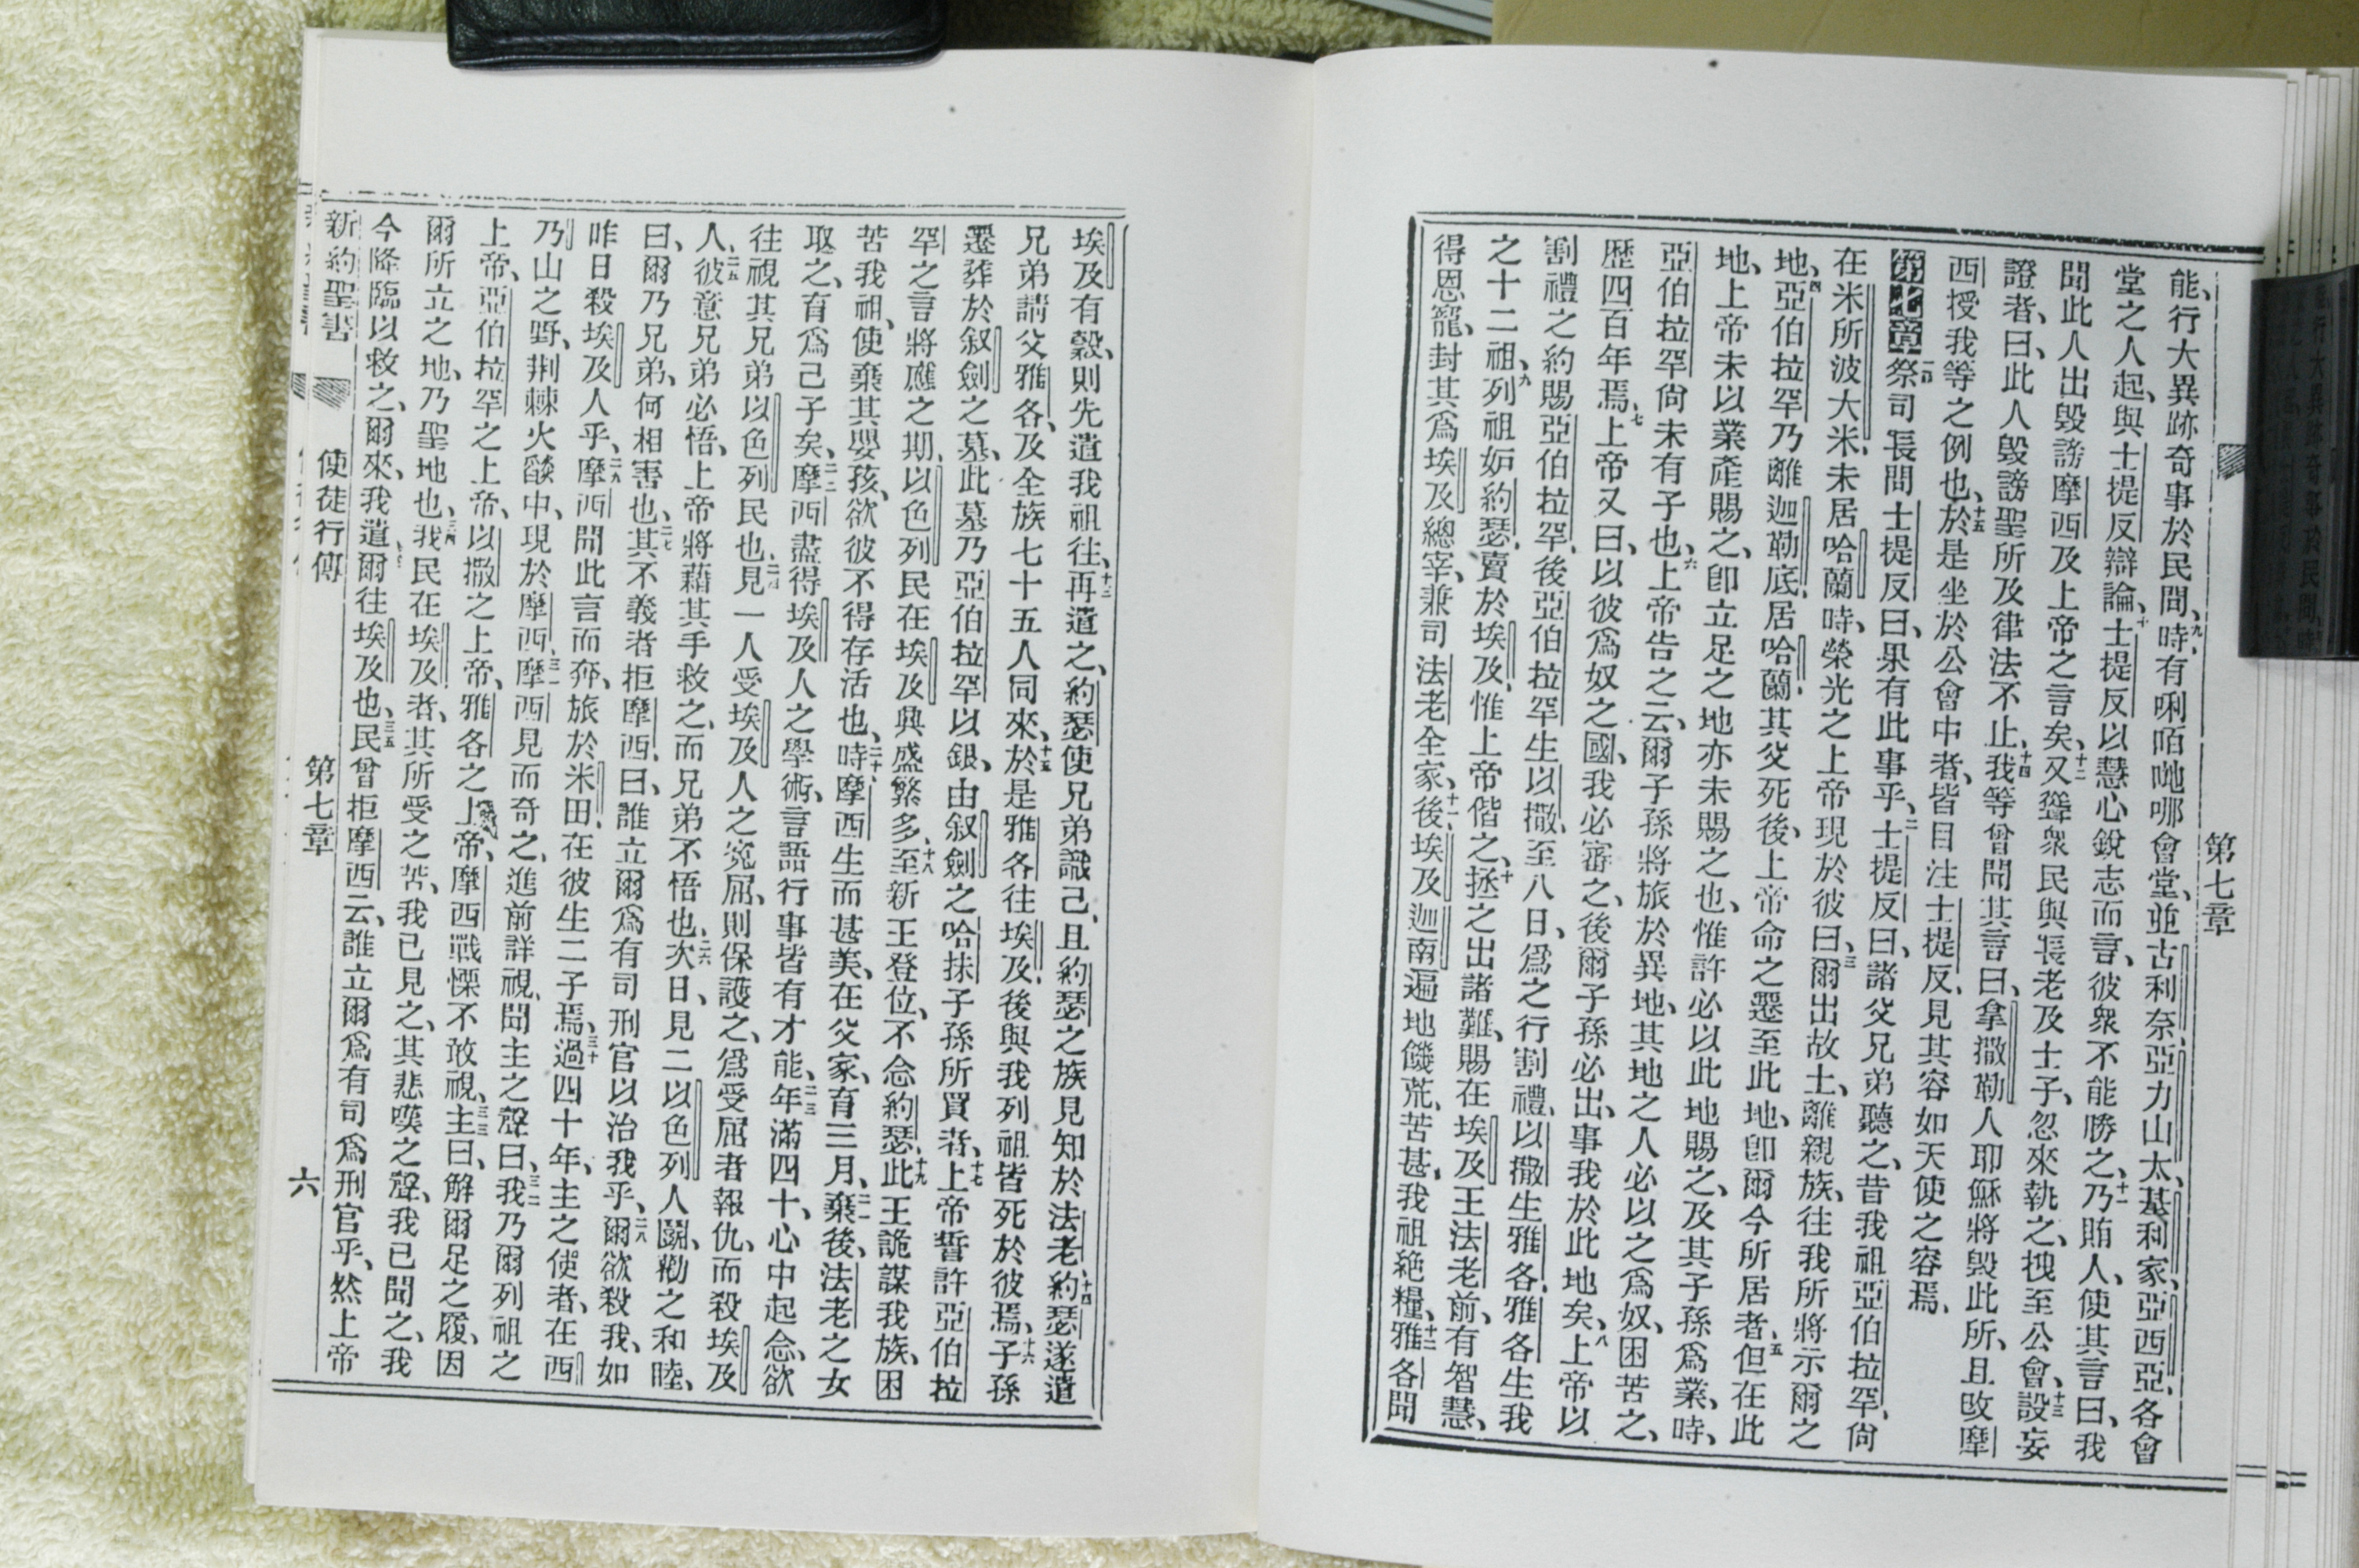 第七章
能、行大異跡奇事於民間、九時有唎哂哋哪會堂、並古利奈、亞力山太、基利家、亞西亞、各會
堂之人起、與士提反辯論、十士提反以慧心銳志而言、彼衆不能勝之、十一乃賄人、使其言曰、我
聞此人出毀謗摩西及上帝之言矣、十二又聳衆民與長老及士子、忽來執之、拽至公會、十三設妄
證者、曰、此人毀謗聖所及律法不止、十四我等曾聞其言曰、拿撒勒人耶穌將毀此所、且改摩
西授我等之例也、十五於是坐於公會中者、皆目注士提反、見其容如天使之容焉、
第七章一祭司長問士提反曰、果有此事乎、二士提反曰、諸父兄弟聽之、昔我祖亞伯拉罕、尚
在米所波大米、未居哈蘭時、榮光之上帝現於彼曰、三爾出故土、離親族、往我所將示爾之
地、四亞伯拉罕乃離迦勒底、居哈蘭、其父死後、上帝命之遷至此地、卽爾今所居者、五但在此
地、上帝未以業產賜之、卽立足之地亦未賜之也、惟許必以此地賜之、及其子孫爲業、時、
亞伯拉罕尚未有子也、六上帝告之云、爾子孫將旅於異地、其地之人必以之爲奴、困苦之、
歷四百年焉、七上帝又曰、以彼爲奴之國、我必審之、後爾子孫必出、事我於此地矣、八上帝以
割禮之約賜亞伯拉罕、後亞伯拉罕生以撒、至八日、爲之行割禮、以撒生雅各、雅各生我
之十二祖、九列祖妬約瑟、賣於埃及、惟上帝偕之、十拯之出諸難、賜在埃及王法老前、有智慧、
得恩寵、封其爲埃及總宰、兼司法老全家、後、十一埃及迦南遍地饑荒、苦甚、我祖絶糧、十二雅各聞
埃及有穀、則先遣我祖往、十三再遣之、約瑟使兄弟識己、且約瑟之族見知於法老、十四約瑟遂遣
兄弟請父雅各、及全族七十五人同來、十五於是雅各往埃及、後與我列祖皆死於彼焉、十六子孫
遷葬於叙劍之墓、此墓乃亞伯拉罕以銀、由叙劍之哈抹子孫所買者、十七上帝誓許亞伯拉
罕之言將應之期、以色列民在埃及興盛繁多、十八至新王登位、不念約瑟、十九此王詭謀我族、困
苦我祖、使棄其嬰孩、欲彼不得存活也、二十時摩西生而甚美、在父家、育三月、二一棄後、法老之女
取之、育爲己子矣、二二摩西盡得埃及人之學術、言語行事皆有才能、二三年滿四十、心中起念、欲
往視其兄弟以色列民也、二四見一人受埃及人之寃屈、則保護之、爲受屈者報仇、而殺埃及
人、二五彼意兄弟必悟、上帝將藉其手救之、而兄弟不悟也、二六次日、見二以色列人鬭、勸之和睦、
曰、爾乃兄弟、何相害也、二七其不義者拒摩西、曰、誰立爾爲有司刑官以治我乎、二八爾欲殺我、如
昨日殺埃及人乎、二九摩西聞此言而奔、旅於米田、在彼生二子焉、三十過四十年、主之使者、在西
乃山之野、荆棘火燄中、現於摩西、三一摩西見而奇之、進前詳視、聞主之聲曰、三二我乃爾列祖之
上帝、亞伯拉罕之上帝、以撒之上帝、雅各之上帝、摩西戰慄不敢視、三三主曰、解爾足之履、因
爾所立之地、乃聖地也、三四我民在埃及者、其所受之苦、我已見之、其悲嘆之聲、我已聞之、我
今降臨以救之、爾來、我遣爾往埃及也、三五民曾拒摩西云、誰立爾爲有司爲刑官乎、然上帝
新約聖書 使徒行傳 第七章 六